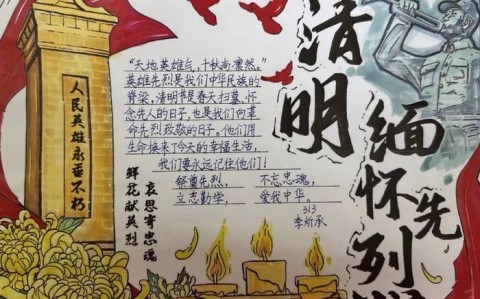 清明
缅怀先烈
人民英雄永垂不朽
“天地英雄气，千秋尚凛然。”
英雄先烈是我们中华民族的
脊梁，清明节是春天扫墓、怀
念先人的日子，也是我们向革
命先烈致敬的日子。他们用
生命换来了今天的幸福生活，
我们要永远记住他们！
祭奠先烈，不忘忠魂，
立志勤学，爱我中华。
313
鲜花献英烈
哀思寄忠魂